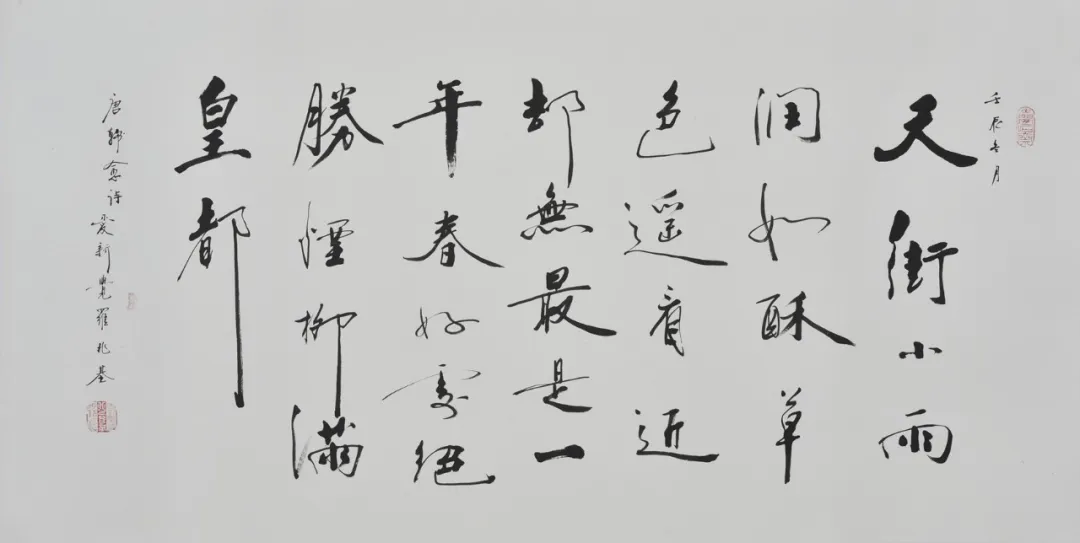 壬辰月
天街小雨
潤如酥草
色遥看近
却無最是一
年春好處絕
勝煙柳滿
皇都
唐韓愈詩愛新覺羅兆基